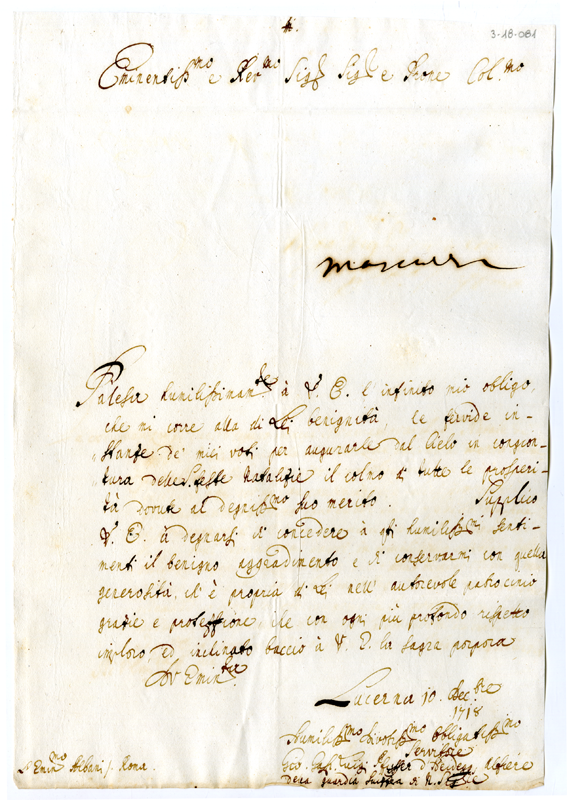 3-18-081
Eminentiss.mo e Rev.mo Sig.r Sig.r e Prone Col.mo
Palesa humilissimam.te à V. E. l'infinito mio obligo,
che mi corre alla di Lei benignità, le fervide in-
stanze de' miei voti per augurarle dal Cielo in congion-
tura delle S. feste Natalizie il colmo di tutte le prosperi-
tà dovute al degniss.mo suo merito. Supplico
V. E. à degnarsi di concedere à gli humiliss.mi senti-
menti il benigno aggradimento e di conservarmi con quella
generosità, ch'è propria di Lei nell'autorevole patrocinio
grazie e protezzione, che con ogni più profondo rispetto
imploro, ed inclinato baccio à V. E. la sagra porpora
Di V. Emin.za
Lucerna 10. Dec.bre
1718
Humiliss.mo Divotiss.mo Obligatiss.mo
Servitore
Gio. Luigi Pfiffer d'Heidegg Alfiere
della guardia Suizza di N. S.
S.r Emin.mo Albani /. Roma.